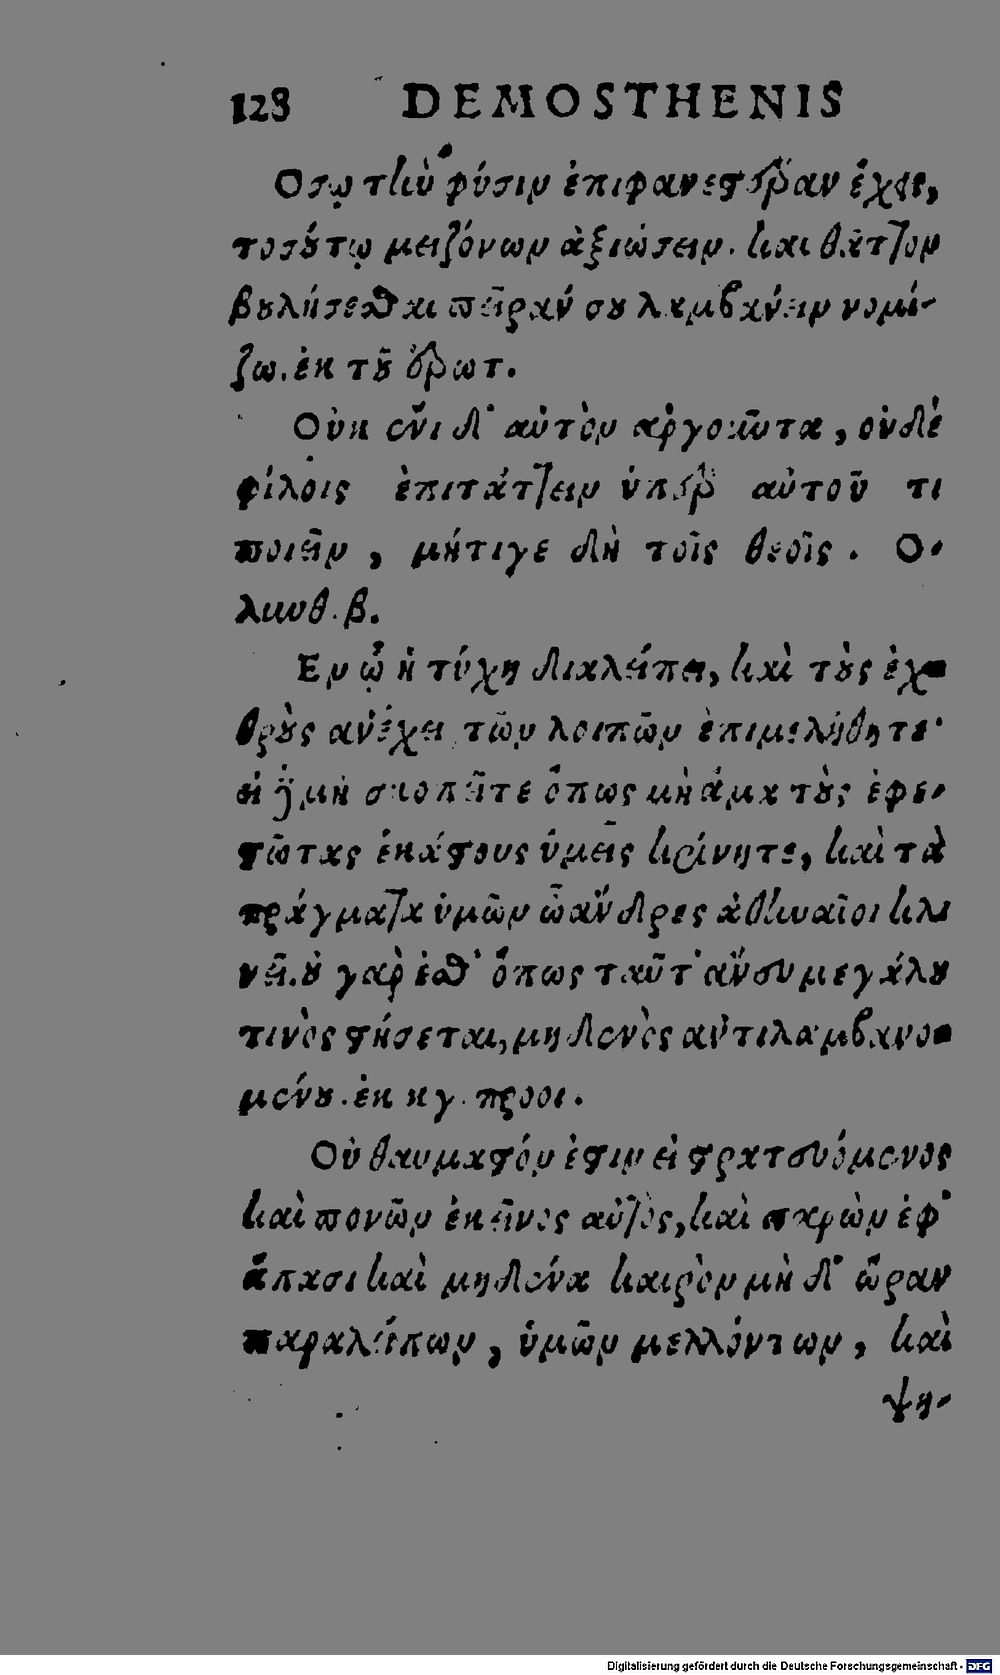 128 DEMOSTHENIS
Ὅσῳ τὴν φύσιν ἐπιφανεστέραν ἔχεις,
τοσούτῳ μειζόνων ἀξιώσειν. καὶ θᾶττον
βουλήσεσθαι πεῖράν σου λαμβάνειν νομί-
ζω. ἐκ τοῦ ἔρωτ.
Οὐκ ἔνι δ' αὐτὸν ἀργοῦντα, οὐδὲ
φίλοις ἐπιτάττειν ὑπὲρ αὐτοῦ τι
ποιεῖν, μήτιγε δὴ τοῖς θεοῖς. Ο-
λυνθ. β.
Εν ᾧ ἡ τύχη διαλείπει, καὶ τοὺς ἐχ-
θροὺς ἀνέχει τῶν λοιπῶν ἐπιμελήθητε·
εἰ δὲ μὴ σκοπεῖτε ὅπως μὴ ἅμα τοὺς ἐφε-
στῶτας ἑκάστους ὑμεῖς κρίνητε, καὶ τὰ
πράγματα ὑμῶν ὦ ἄνδρες ἀθηναῖοι κλι
νεῖ. οὐ γὰρ ἔσθ' ὅπως ταῦτ' ἄνευ μεγάλου
τινὸς στήσεται, μηδενὸς ἀντιλαμβανο-
μένου. ἐκ κγ. προοι.
Οὐ θαυμαστόν ἐστιν εἰ στρατευόμενος
καὶ πονῶν ἐκεῖνος αὐτὸς, καὶ παρὼν ἐφ'
ἅπασι καὶ μηδένα καιρὸν μὴ δ' ὥραν
παραλείπων, ὑμῶν μελλόντων, καὶ
ψη-
Digitalisierung gefördert durch die Deutsche Forschungsgemeinschaft - DFG